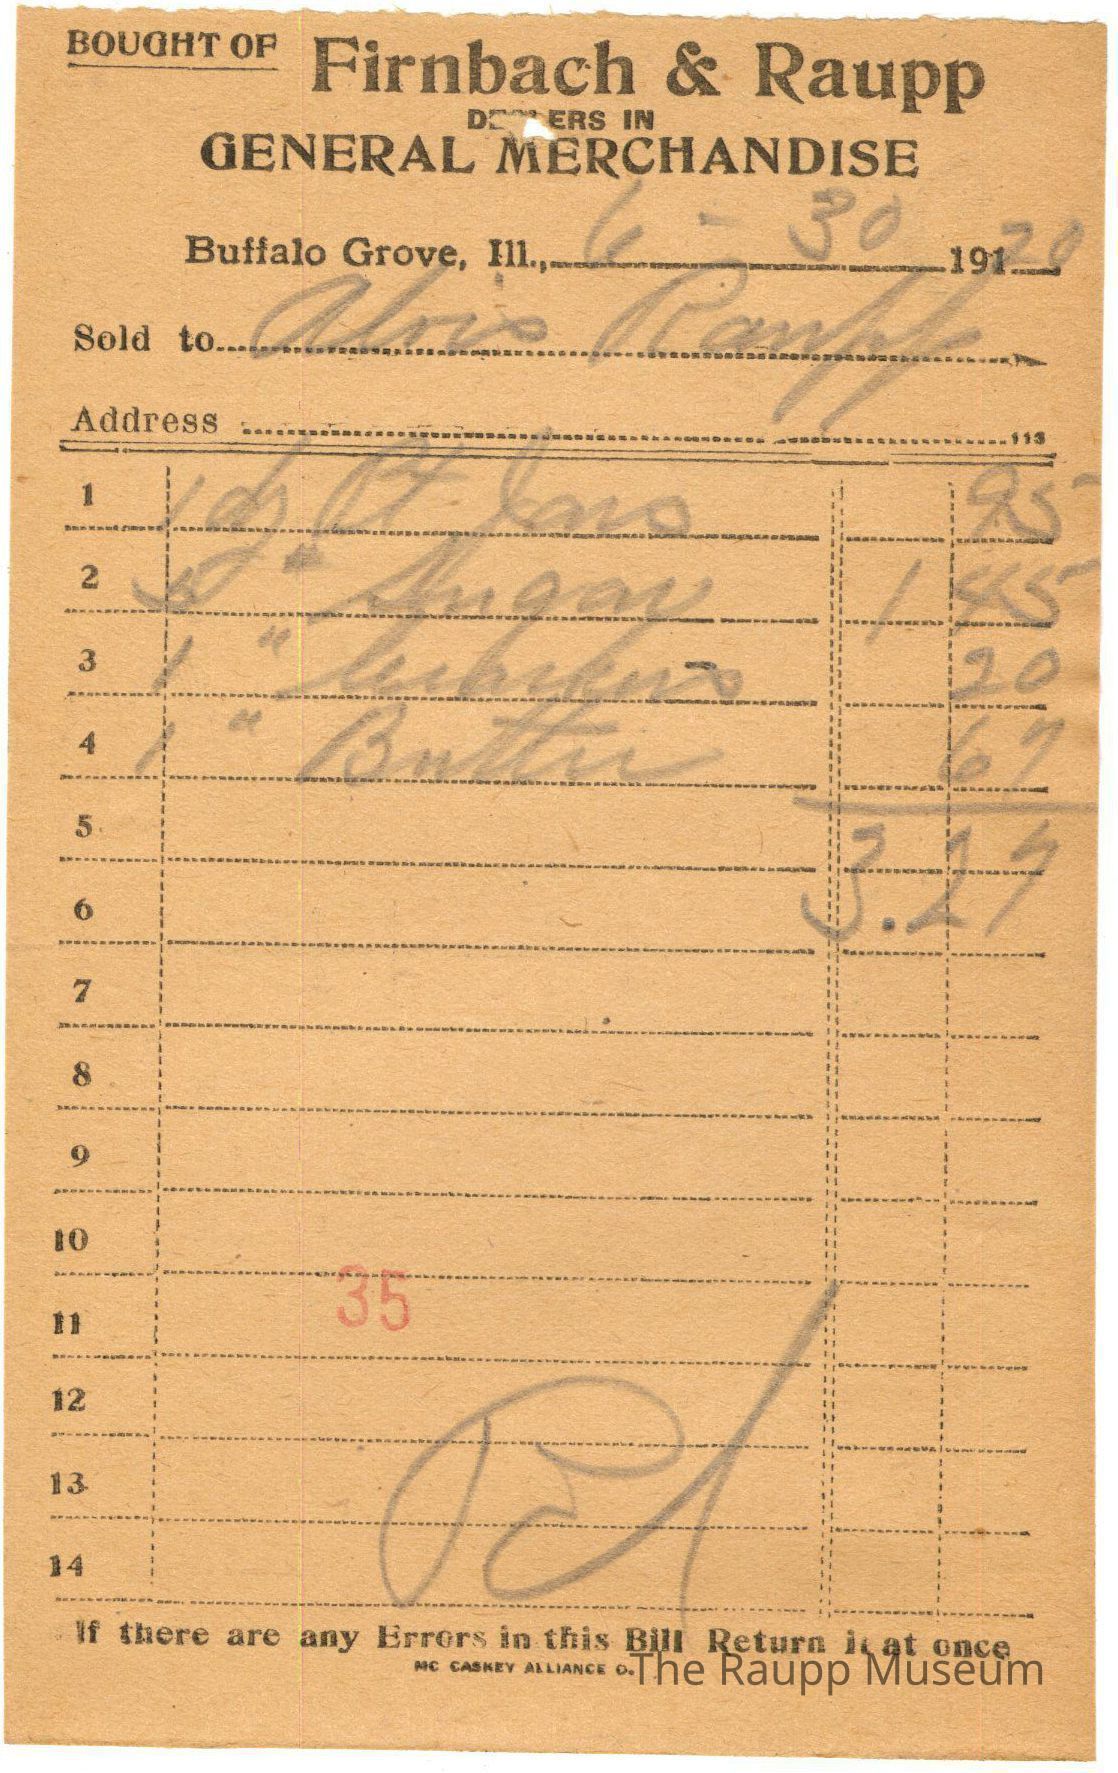 BOUGHT OF Firnbach & Raupp
DEALERS IN
GENERAL MERCHANDISE
Buffalo Grove, Ill., 6 - 30 191 20
Sold to Alois Raupp
Address
113
1 1 dz Pt Jars 95
2 5 " Sugar 1 45
3 1 " 20
4 1 " Butter 67
5 3.27
6
7
8
9
10
35
11
12
13
14
Pd
If there are any Errors in this Bill Return it at once
MC CASKEY ALLIANCE O.
The Raupp Museum